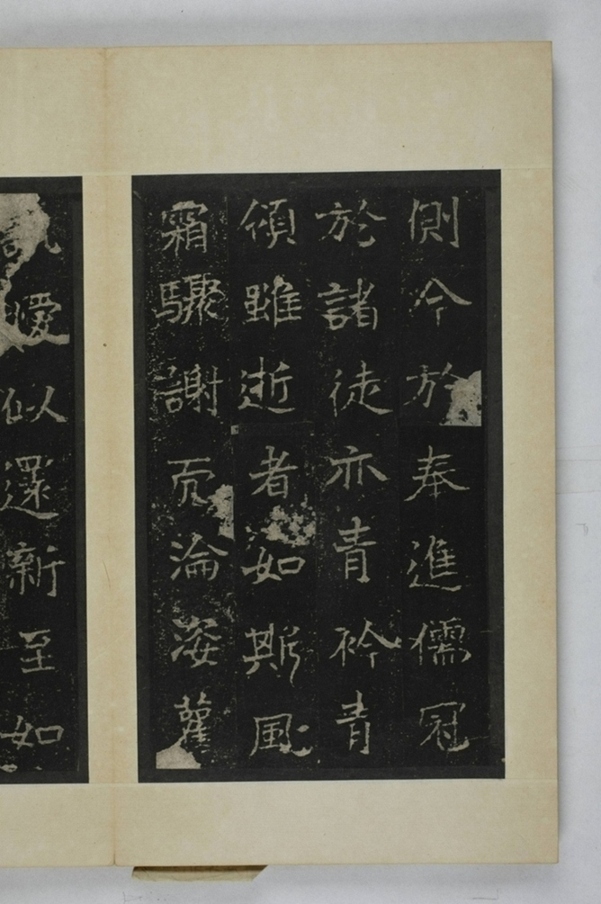 側今於奉進儒冠
於諸徒亦青衿青
領雖逝者如斯風
霜驟謝而淪姿舊
愛似還新至如